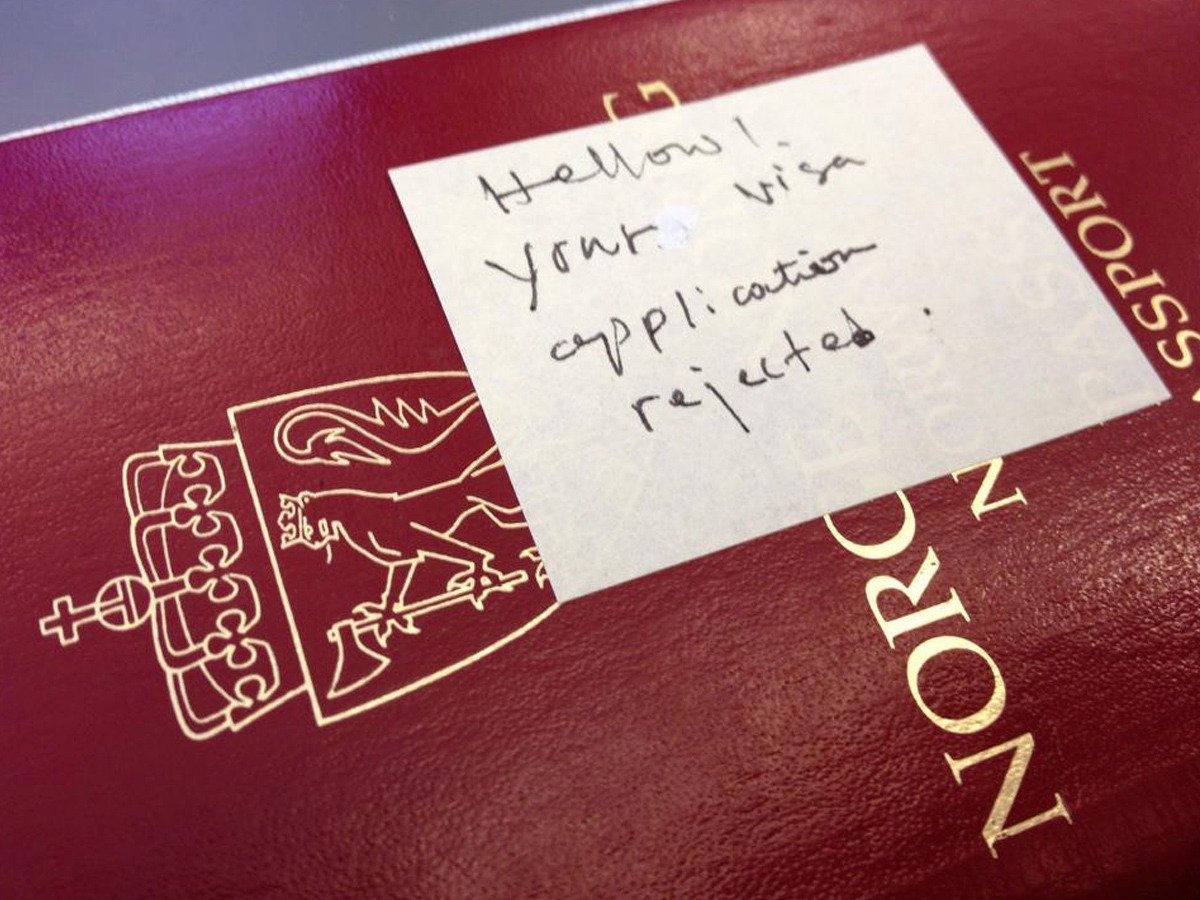 Hellow!
your visa
application
rejected.
NORGE
N G
SSPORT